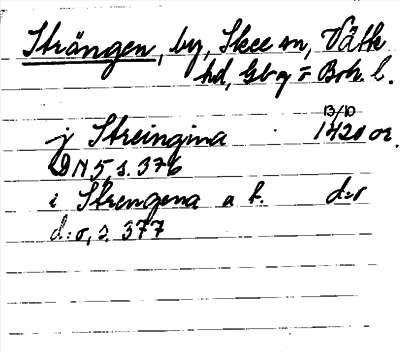 Strängen, by, Skee sn, Vätte
hd, Gbg o Boh. l.
j Streingina 13/10 1420 or.
DN 5, s. 376
i Strengena a k. d:o
d:o, s. 377